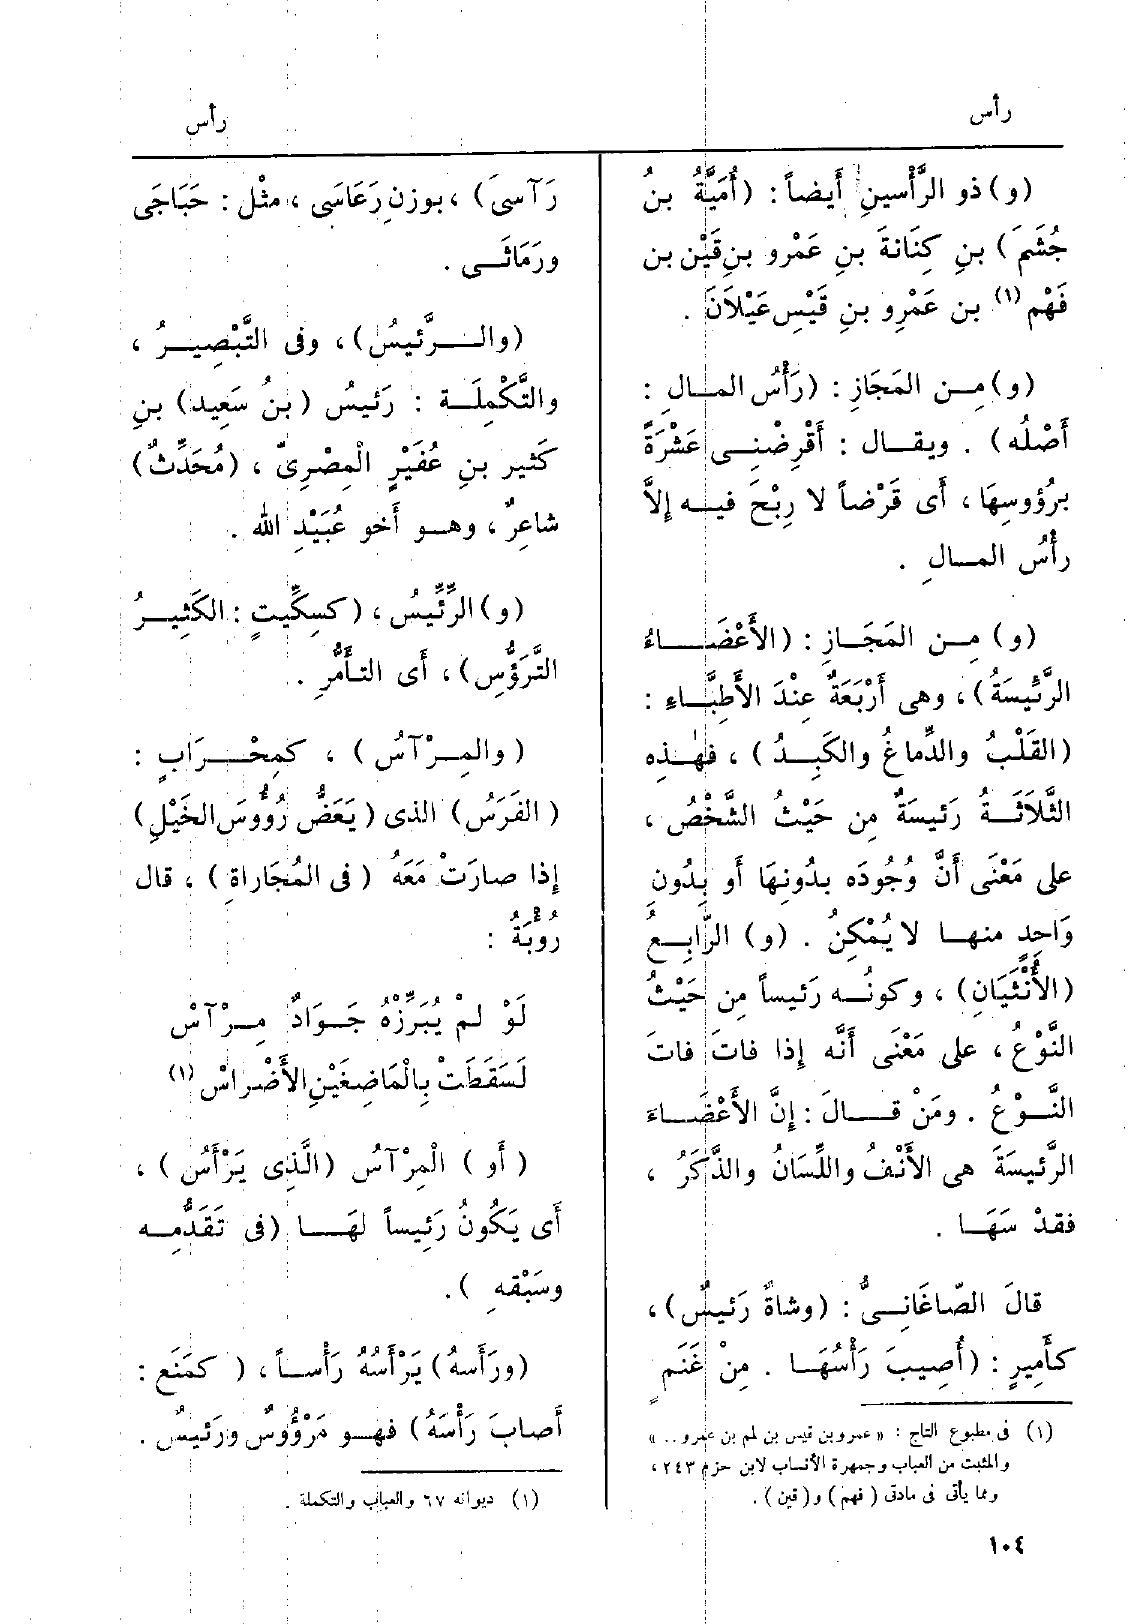 رأس
رأس
(و) ذو الرَّأْسينِ أَيضاً : (أُمَيَّةُ بنُ
جُشَمَ) بنِ كِنَانةَ بنِ عَمْرِو بنِ قَيْن بن
فَهْم (١) بن عَمْرِو بنِ قَيْسِ عَيْلَانَ .
(و) مِن المَجَازِ : (رَأْسُ المالِ :
أَصْلُه) . ويقال : أَقْرِضْنِى عَشْرَةً
برُؤوسِهَا ، أَى قَرْضاً لا رِبْحَ فيه إِلاَّ
رأْسُ المالِ .
(و) مِن المَجَازِ : (الأَعْضَاءُ
الرَّئِيسَةُ) ، وهى أَرْبَعَةٌ عِنْدَ الأَطِبَّاءِ :
(القَلْبُ والدِّماغُ والكَبِدُ) ، فهٰذِه
الثَّلَاثَةُ رَئِيسَةٌ مِن حَيْثُ الشَّخْصُ ،
على مَعْنَى أَنَّ وُجُودَه بدُونِهَا أَو بِدُونِ
وَاحِدٍ منها لا يُمْكِنُ . (و) الرّابِعُ
(الأُنْثَيَانِ) ، وكونُه رَئيساً مِن حَيْثُ
النَّوْعُ ، على مَعْنَى أَنَّه إِذا فاتَ فاتَ
النَّوْعُ . ومَنْ قالَ : إِنَّ الأَعْضَاءَ
الرَّئيسَةَ هى الأَنْفُ واللِّسَانُ والذَّكَرُ ،
فقدْ سَهَا .
قالَ الصّاغَانِىُّ : (وشاةٌ رَئيسٌ) ،
كأَمِيرٍ : (أُصِيبَ رَأْسُهَا . مِنْ غَنَمٍ
(١) فى مطبوع التاج : « عمرو بن قيس بن لهم بن عمرو .. »
والمثبت من العباب وجمهرة الأنساب لابن حزم ٢٤٣ ،
ومما يأتى فى مادتى ( فهم ) و( قين ) .
رَآسىَ) ، بوزنِ رَعَاسَى ، مثْل : حَبَاجَى
ورَمَاثَى .
(والرَّئيسُ) ، وفى التَّبْصِيرُ ،
والتَّكْمِلَة : رَئيسُ (بنُ سَعِيد) بنِ
كَثير بنِ عُفَيْرٍ الْمِصْرِىّ ، (مُحَدِّثٌ)
شاعِرٌ ، وهو أَخو عُبَيْدِ الله .
(و) الرِّئِّيسُ ، (كسِكِّيتٍ : الكَثِيرُ
التَّرَؤُّسِ) ، أَى التأَمُّرِ .
(والمِرْآسُ) ، كمِحْرَابٍ :
(الفَرَسُ) الذى (يَعَضُّ رُؤُوسَ الخَيْلِ)
إِذا صارَتْ مَعَهُ (فى المُجَاراةِ) ، قال
رُؤْبَةُ :
لَوْ لمْ يُبَرِّزْهُ جَوَادٌ مِرْآسْ
لَسَقَطَتْ بِالْمَاضِغَيْنِ الأَضْراسْ (١)
(أَو) الْمِرْآسُ (الَّذِى يَرْأَسُ) ،
أَى يَكُونُ رَئِيساً لهَا (فى تَقَدُّمِه
وسَبْقهِ ) .
(ورَأَسهُ) يَرْأَسُهُ رَأْساً ، ( كمَنَع :
أَصابَ رَأْسَهُ) فهو مَرْؤُوسٌ ورَئيسٌ .
(١) ديوانه ٦٧ والعباب والتكملة .
١٠٤